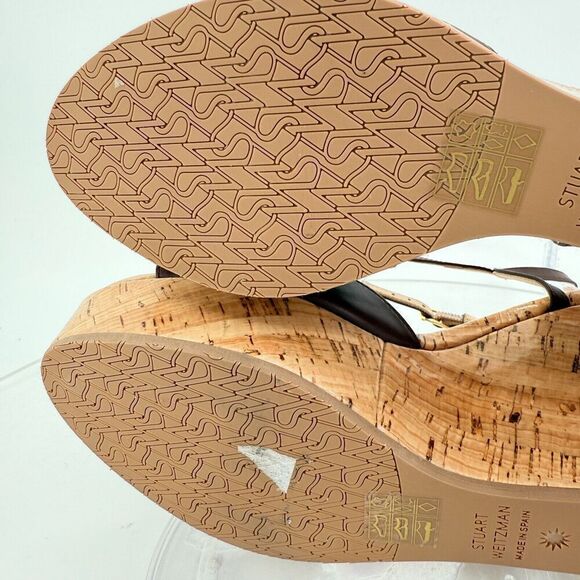 STUART
STUART
WEITZMAN
MADE IN SPAIN